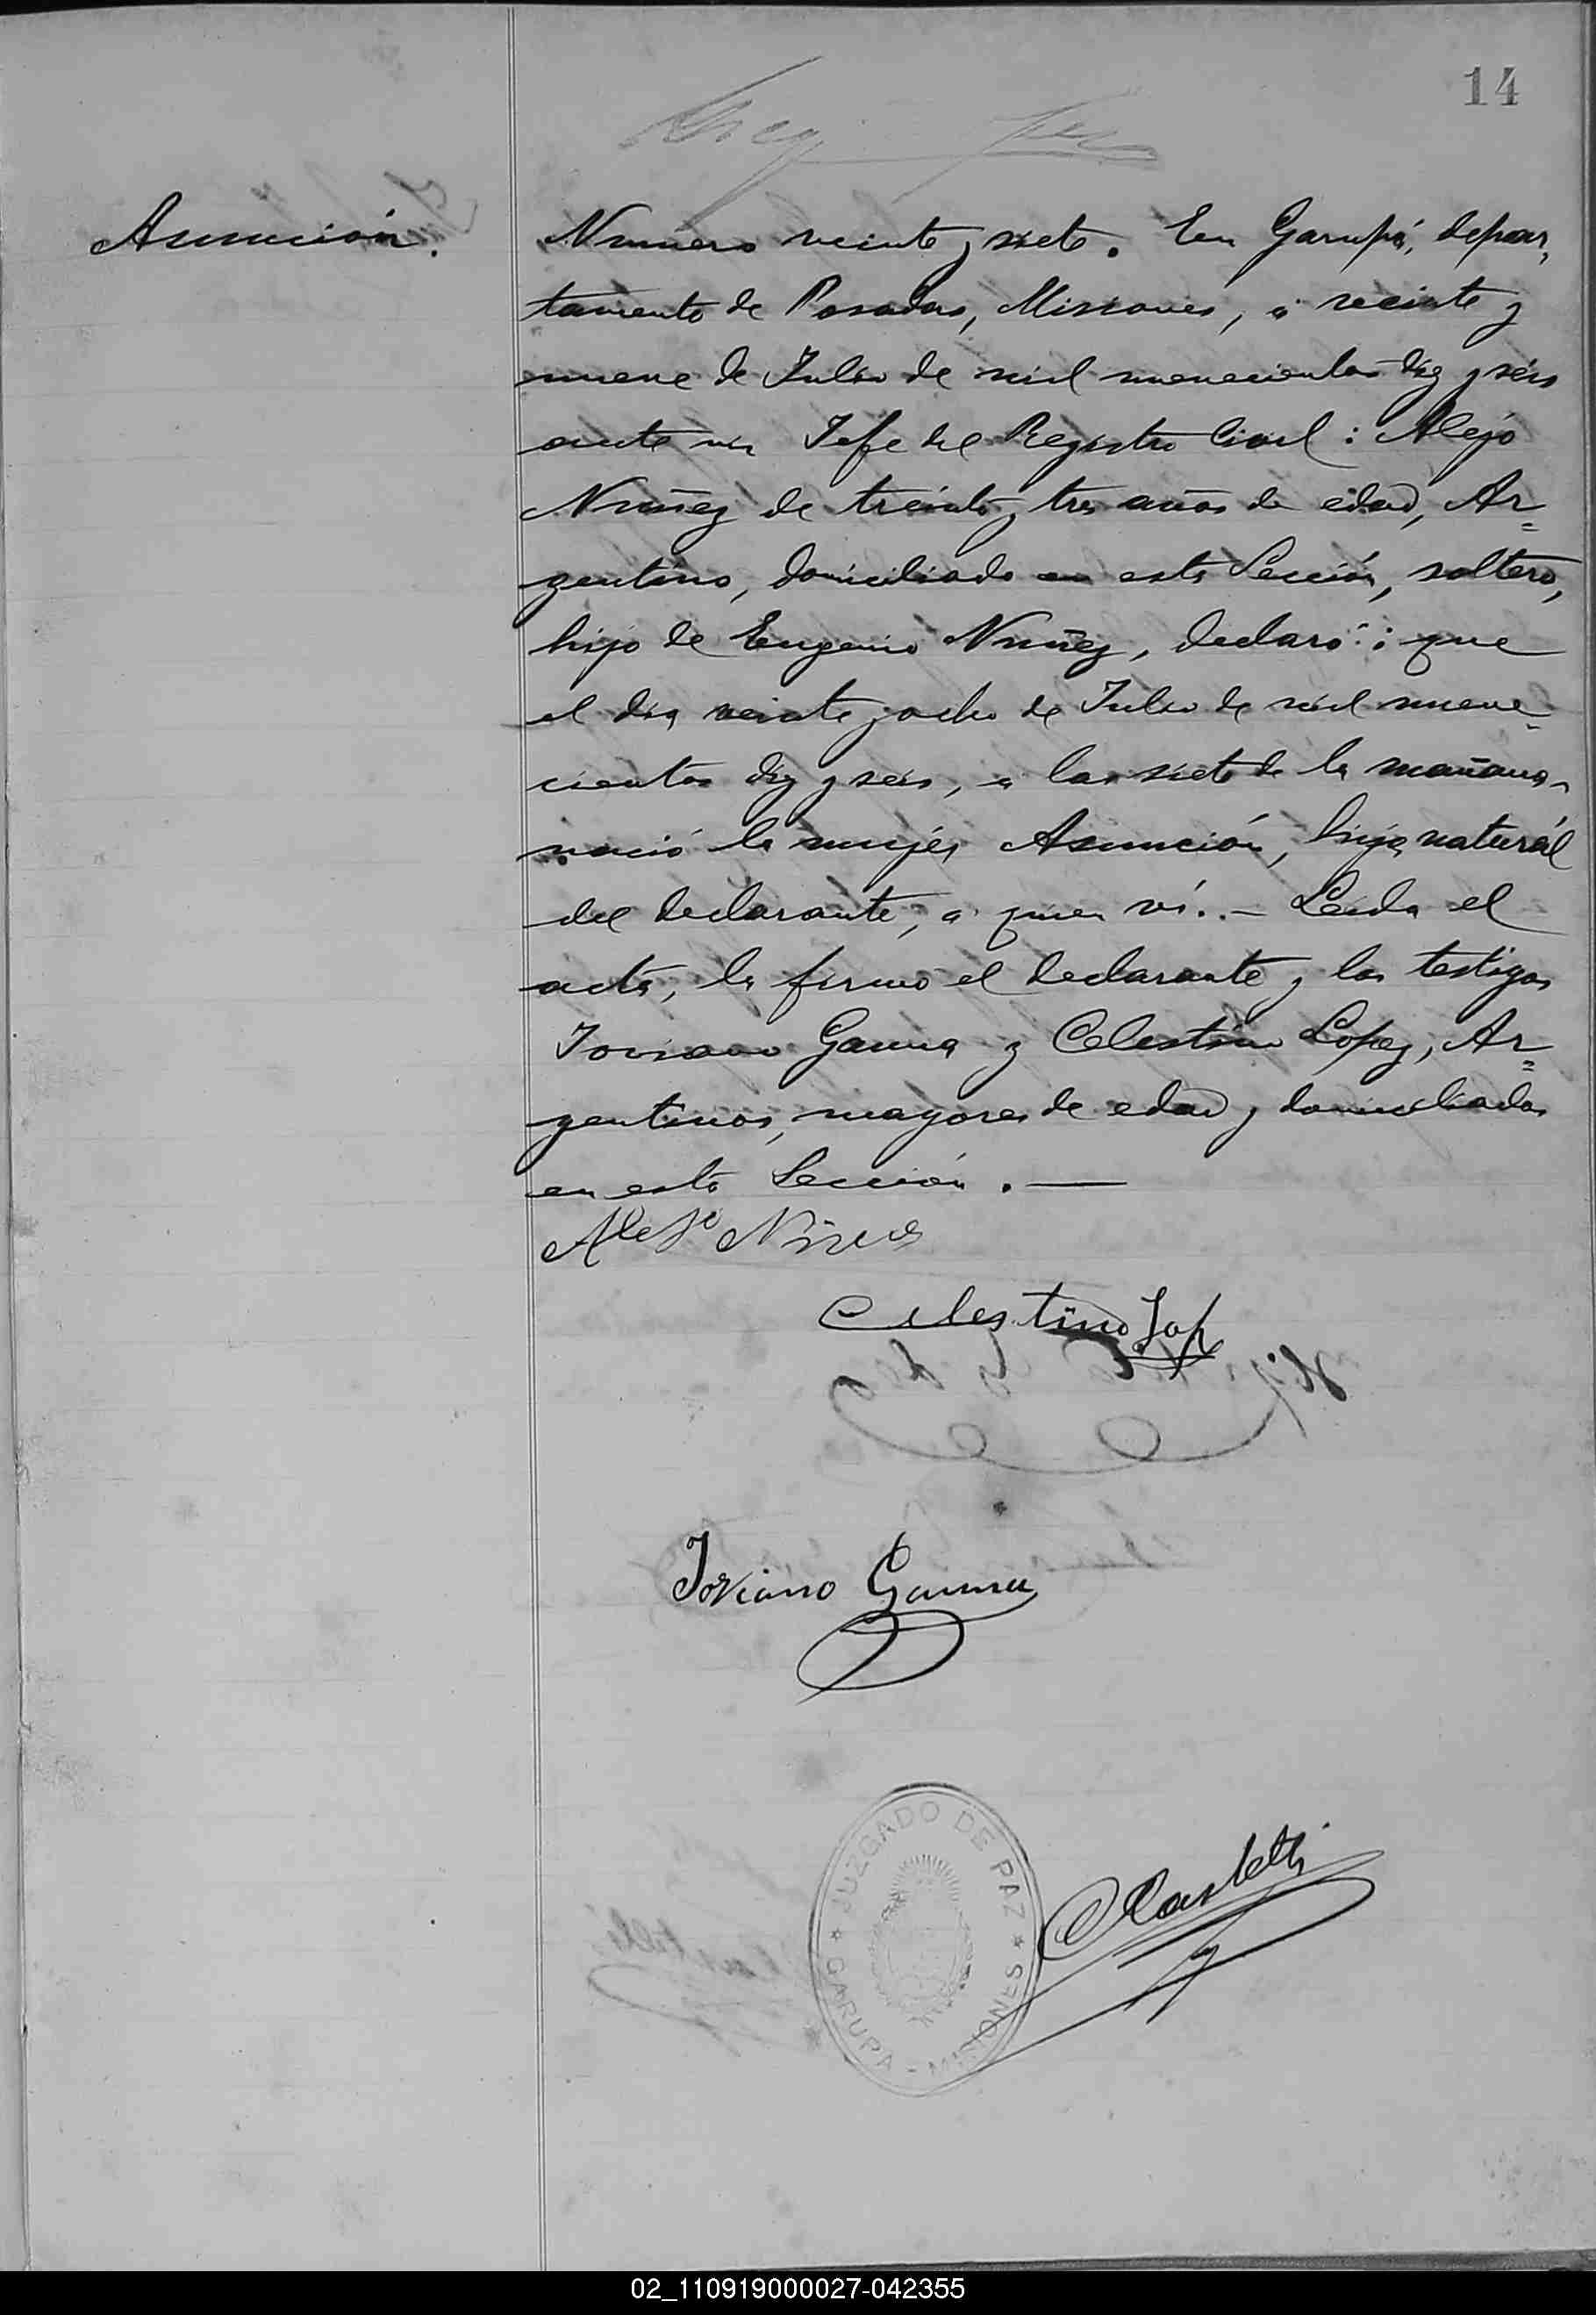 14
Asunción.
Numero veinte y siete. En Garupá, depar,
tamento de Posadas, Misiones, a veinte y
nueve de Julio de mil novecientos diez y séis
ante mi Jefe del Registro Civil: Alejo
Nuñez de treinta y tres años de edad, Ar=
gentino, domiciliado en esta Sección, soltero,
hijo de Eugenio Nuñez, declaró: que
el dia veinte y ocho de Julio de mil nueve-
cientos diez y seis, a las siete de la mañana
nació la mujer Asunción, hija naturál
del declarante, a quien ví.. — Leida el
acta, la firmó el declarante y los testigos
Joviano Gauna y Celestino Lopez, Ar=
gentinos, mayores de edad y domiciliados
en esta Sección. —
Alejo
Celestino Lop
Joviano Gauna
JUZGADO DE PAZ
GARUPA - MISIONES
Castelli
02_110919000027-042355